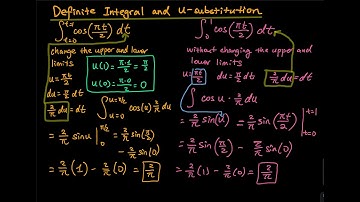 Definite Integral and u-substitution
∫_{t=0}^{t=1} cos(πt/2) dt
change the upper and lower
limits
u = πt/2
du = π/2 dt
2/π du = dt
u(1) = π·1/2 = π/2
u(0) = π·0/2 = 0
∫_{u=0}^{u=π/2} cos(u) 2/π du
= 2/π sin u |_0^{π/2} = 2/π sin(π/2)
- 2/π sin(0)
= 2/π (1) - 2/π (0) = 2/π
∫_0^1 cos(πt/2) dt
without changing the upper and
lower limits
u = πt/2 du = π/2 dt 2/π du = dt
∫ cos u · 2/π du
= 2/π sin(u) = 2/π sin(πt/2) |_{t=0}^{t=1}
= 2/π sin(π/2) - 2/π sin(0)
= 2/π (1) - 2/π (0) = 2/π